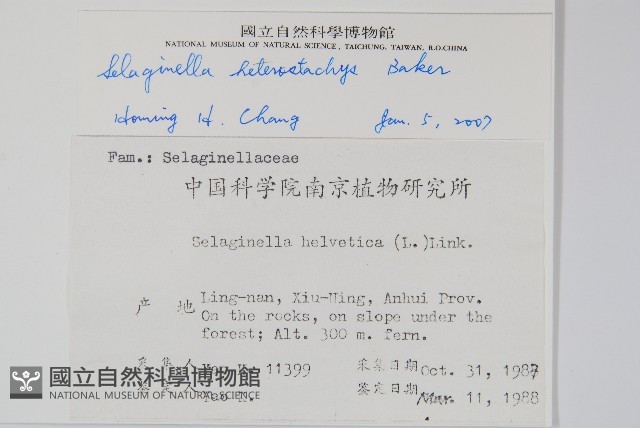 國立自然科學博物館
NATIONAL MUSEUM OF NATURAL SCIENCE, TAICHUNG, TAIWAN, R.O.CHINA
Selaginella heterostachys Baker
Homing H. Chang Jan. 5, 2007
Fam.: Selaginellaceae
中国科学院南京植物研究所
Selaginella helvetica (L.)Link.
产 地 Ling-nan, Xiu-Ning, Anhui Prov.
On the rocks, on slope under the
forest; Alt. 300 m. fern.
采 集 人 Yao K. 11399 采集日期 Oct. 31, 1987
人 Yao K. 鉴定日期 Mar. 11, 1988
國立自然科學博物館
NATIONAL MUSEUM OF NATURAL SCIENCE